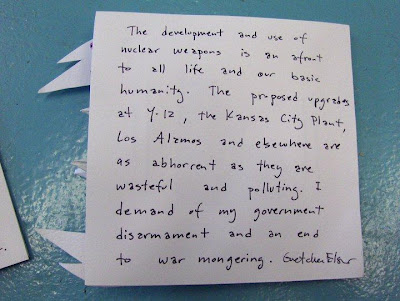 The development and use of
nuclear weapons is an afront
to all life and our basic
humanity. The proposed upgrades
at Y-12, the Kansas City Plant,
Los Alamos and elsewhere are
as abhorrent as they are
wasteful and polluting. I
demand of my government
disarmament and an end
to war mongering. Gretchen